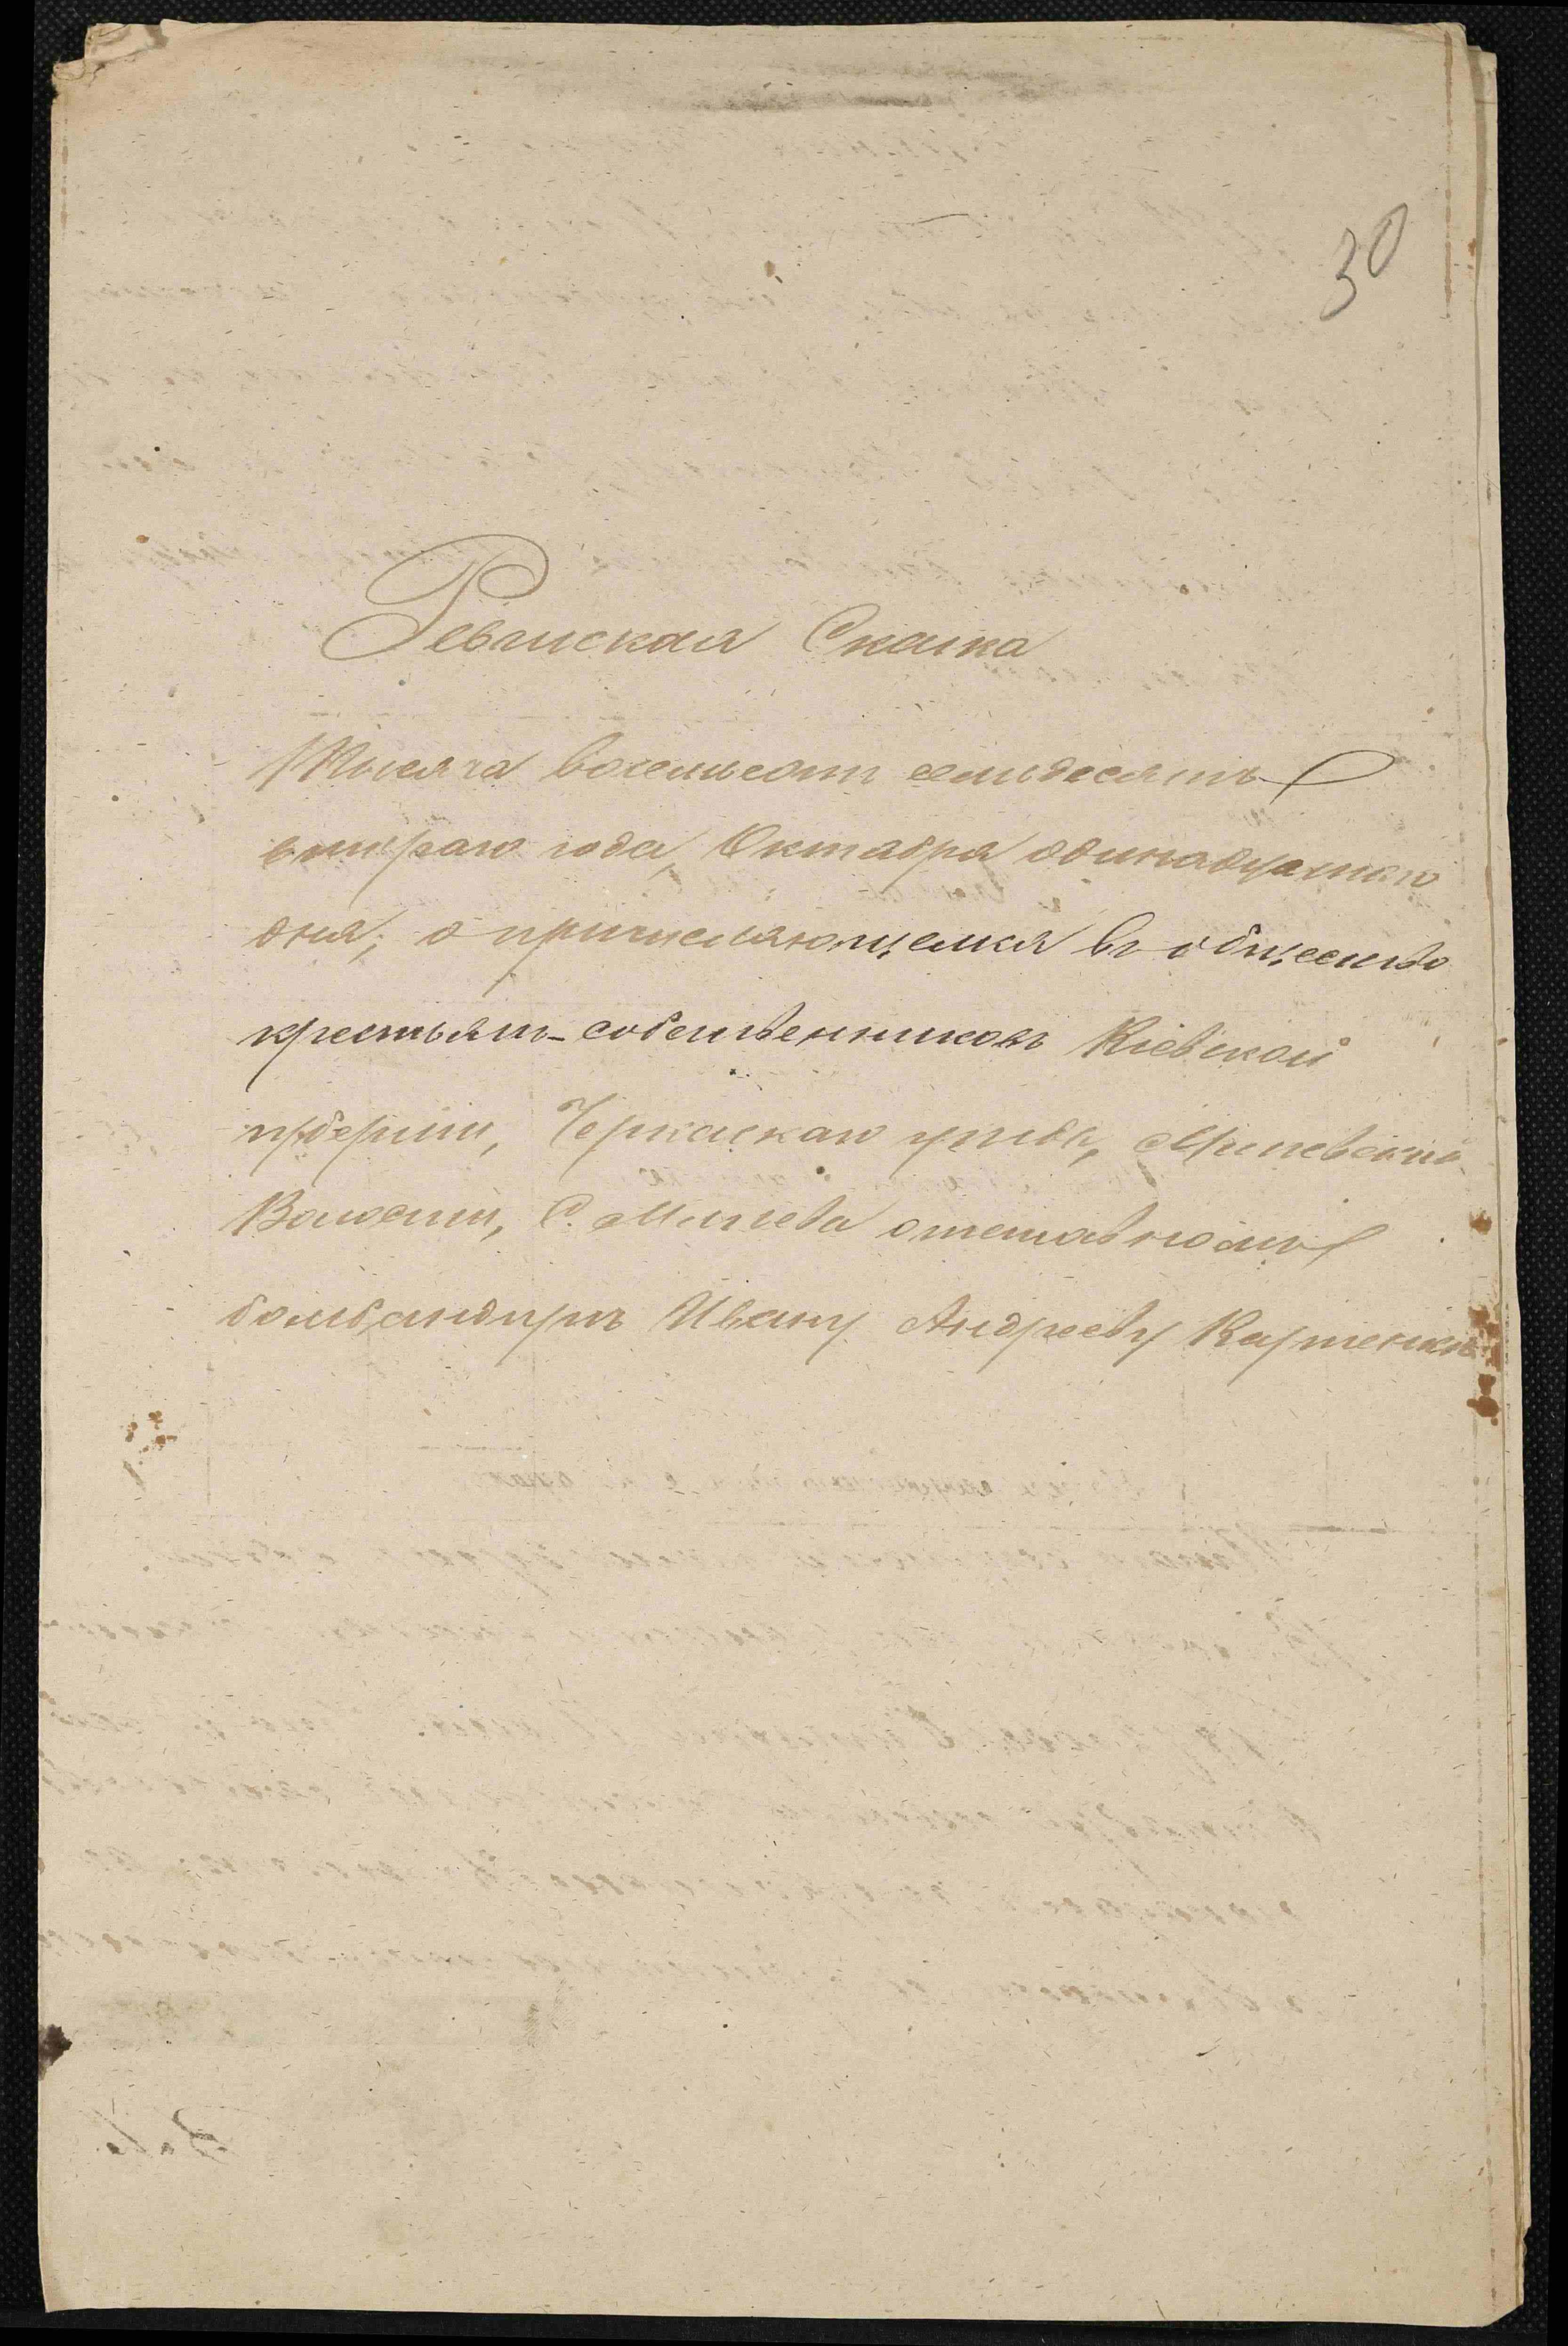 30
Ревизская Сказка
Тысяча восемьсотъ семьдесятъ
втораго года, Октября одинадцатаго
дня, о причисляющемся въ общество
крестьянъ-собственниковъ Кіевской
губерніи, Черкаскаго уѣзда,
Волости, С. отставномъ
бомбандирѣ Ивану Андрееву